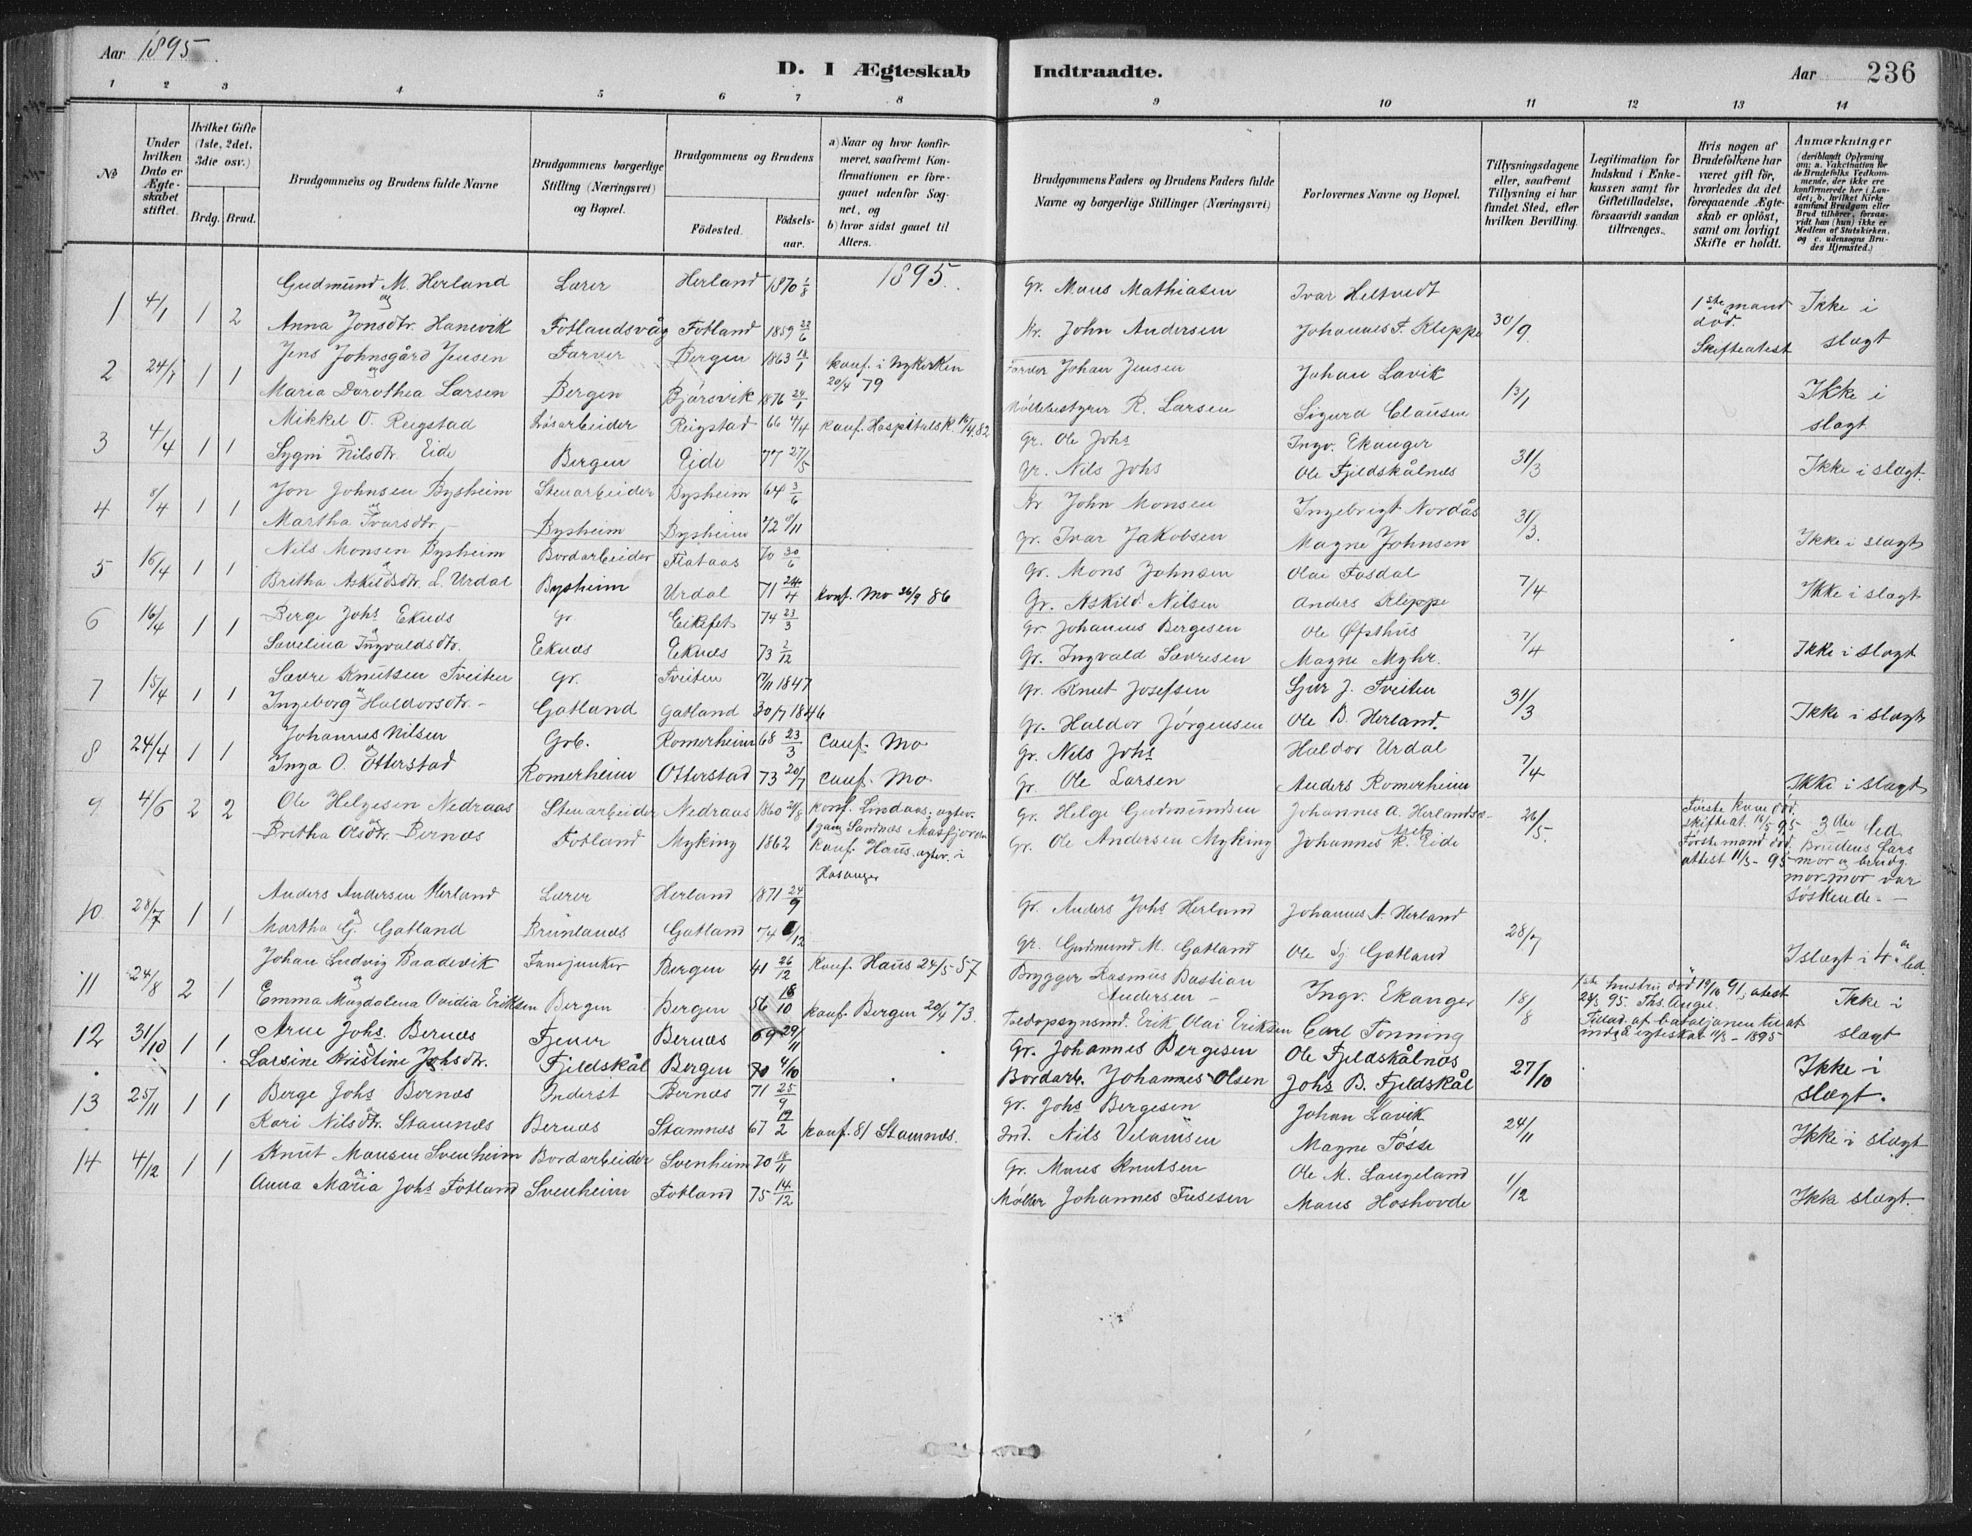 Aar 1895.
D. I Ægteskab Indtraadte.
Aar 236
1 2 3 4 5 6 7 8 9 10 11 12 13 14
№
Under hvilken Dato er Ægteskabet stiftet.
Hvilket Gifte (1ste, 2det, 3die osv.)
Brdg. Brud.
Brudgommens og Brudens fulde Navne
Brudgommens borgerlige Stilling (Næringsvei) og Bopæl.
Brudgommens og Brudens
Fødested. Fødselsaar.
a) Naar og hvor konfirmeret, saafremt Konfirmationen er foregaaet udenfor Sognet, og
b) hvor sidst gaaet til Alters.
Brudgommens Faders og Brudens Faders fulde Navne og borgerlige Stillinger (Næringsvei)
Forlovernes Navne og Bopæl.
Tillysningsdagene eller, saafremt Tillysning ei har fundet Sted, efter hvilken Bevilling.
Legitimation for Indskud i Enkekassen samt for Giftetilladelse, forsaavidt saadan tiltrænges.
Hvis nogen af Brudefolkene har været gift før, hvorledes da det foregaaende Ægteskab er opløst, samt om lovligt Skifte er holdt.
Anmærkninger
(deriblandt Oplysning om: a. Vakcination for de Brudefolks Vedkommende, der ikke ere konfirmerede her i Landet; b. hvilket Kirkesamfund Brudgom eller Brud tilhører, forsaavidt han (hun) ikke er Medlem af Statskirken, og c. udensogns Brudes Hjemsted.)
1895.
1 4/1 1 2 Gudmund M. Herland Lærer Herland 1870 1/8 Gr. Mons Mathiasen Ivar Heltvedt 30/9 1ste mand død. Skifteatest Ikke i slægt
og
Anna Jonsdtr. Hanevik Fotlandsvåg Fotland 1859 22/6 Kr. John Andersen Johannes F. Kleppe
2 24/1 1 1 Jens Johnsgård Jensen Farver Bergen 1863 18/1 konf. i Nykirken 20/4 79 Farver Johan Jensen Johan Lavik 13/1 Ikke i slægt
og
Maria Dorothea Larsen Bergen Bjørsvik 1876 24/1 Møllebestyrer R. Larsen Sigurd Clausen
3 4/4 1 1 Mikkel O. Reigstad Løsarbeider Reigstad 66 4/4 konf. Hospitalsk. 16/4 82 Gr. Ole Johs Ingv. Ekanger 31/3 Ikke i slægt.
Sygni Nilsdtr. Eide Bergen Eide 77 27/5 Gr. Nils Johs Ole Fjeldskålnes
4 8/4 1 1 Jon Johnsen Bysheim Stenarbeider Bysheim 64 3/6 Kr John Monsen Ingebrigt Nordås 31/3. Ikke i slægt
Martha Ivarsdtr. Bysheim Bysheim 72 9/11 Gr. Ivar Jakobsen Magne Johnsen
5 16/4 1 1 Nils Monsen Bysheim Bordarbeider Flataas 70 30/6 Gr. Mons Johnsen Olai Fosdal 7/4 Ikke i slægt
Britha Askildsdtr. S. Urdal Bysheim Urdal 71 24/4 konf. Mo 26/9 86 Gr. Askild Nilsen Anders Kleppe
6 16/4 1 1 Berge Johs Eknes Gr. Eikefet 74 23/3 Gr Johannes Bergesen Ole Øfsthus 7/4 Ikke i slægt
Savelina Ingvaldsdtr. Eknæs Eknæs 73 2/12 Gr. Ingvald Sævresen Magne Myhr.
7 15/4 1 1 Sævre Knutsen Tveiten Gr. Tveiten 17/11 1847 Gr. Knut Josefsen Sjur J. Tveiten 31/3 Ikke i slægt
Ingeborg Haldorsdtr. Gatland Gatland 30/7 1846 Gr. Haldor Jørgensen Ole B. Herland.
8 24/4 1 1 Johannes Nilsen Grb. Romerheim 68 23/3 conf. Mo Gr. Nils Johs Haldor Urdal 7/4 Ikke i slægt
Inga O. Otterstad Romerheim Otterstad 73 20/7 conf. Mo. Gr. Ole Larsen Anders Romerheim
9 4/6 2 2 Ole Helgesen Nedraas Stenarbeider Nedraas 1860 24/8 konf. Lindaas; agter. 1 gang Sandnes Masfjorden Gr. Helge Gudmundsen Johannes A. Herlands 26/5. Første kone død. skifteat. 14/5 95 3die led
Britha Olsdtr. Bernæs Fotland Myking 1862 konf. Haus, agter. i Hosanger Gr. Ole Andersen Myking Johannes K. Eide Første mand død. attest 11/5 - 95 Brudens fars mor og brudg. mor-mor var søskende.
10. 28/7 1 1 Anders Andersen Herland Lærer Herland 1871 24/9 Gr. Anders Johs Herland Johannes A. Herland 28/7 I slægt i 4de led.
Martha G. Gatland Brunlands Gatland 74 /12 Gr. Gudmund M. Gatland Ole Sj. Gatland
11 24/8 2 1 Johan Ludvig Baadevik Fanejunker Bergen 41 26/12 Konf. Haus 24/5 57 Brygger Rasmus Bastian Andersen Ingv. Ekanger 18/8 1ste hustru død 19/10 91, atest 24/5 95 Ths. Angel. Tillad. af bataljonen til at indgå egteskab 11/5 - 1895 Ikke i slægt
Emma Magdalena Ovidia Eriksen Bergen Bergen 56 18/10 konf. Bergen 20/4 73. Toldopsynsmd. Erik Olai Eriksen Carl Tonning
12 31/10 1 1 Arne Johs. Bernæs Tjener Bernæs 69 29/11 Gr. Johannes Bergesen Ole Fjeldskålnæs 27/10 Ikke i slægt.
Larsine Kristine Johsdtr. Fjeldskål Bergen 70 4/10 Bordarb. Johannes Olsen Johs B. Fjeldskål
13 25/11 1 1 Berge Johs Bernæs Inderst Bernæs 71 25/9 Gr. Johs Bergesen Johan Lavik 24/11 Ikke i slægt
Kari Nilsdtr. Stamnæs Bernæs Stamnæs 67 19/2 konf. 81 Stamnæs. Ind. Nils Velamsen Magne Tøsse
14 4/12 1 1 Knut Monsen Svenheim Bordarbeider Svenheim 70 18/11 Gr. Mons Knutsen Ole M. Langeland 1/12 Ikke slægt.
Anna Maria Johs Fotland Svenheim Fotland 75 14/12 Møller Johannes Tufesen Mons Hoshovde